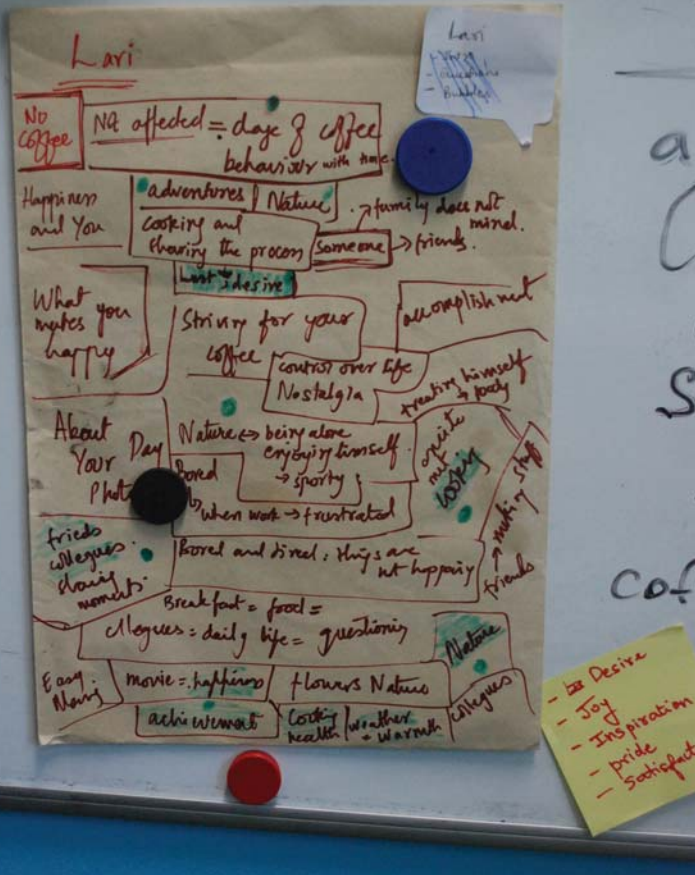 Lari
Lari
- Bubbles
No
coffee
NA affected = days of coffee
behaviour with time.
Happiness
and You
adventures
Nature
cooking and
sharing the process
someone
→ family does not
mind.
→ friends.
Lost desire
What
makes you
happy
Striving for your
coffee
accomplishment
control over life
Nostalgia
treating himself
→ body
About
Your Day
Photo
Nature ↔ being alone
enjoying himself
→ sporty
Bored
when work → frustrated
cooking
friends → making stuff
frieds
collegues
sharing
moments
Bored and tired : things are
not happening
Breakfast = food =
cllegues = daily life = questioning
Nature
Easy
movie = happiness
flowers Nature
collegues
achievement
Cooking
health
weather
→ warmth
a
S
cof
- Desire
- Joy
- Inspiration
- pride
- Satisfact